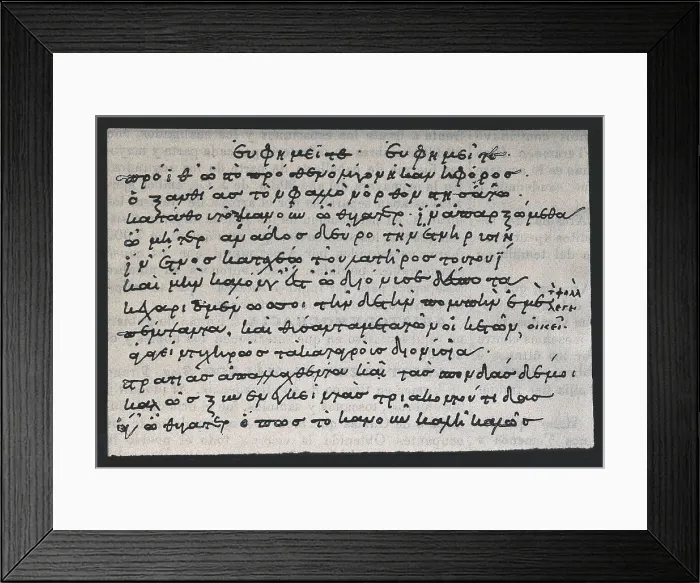 εὐφημεῖτε εὐφημεῖτε.
πρόϊθ' ὡ πὸ πρόσθεν ὀλίγον ἡ κανηφόρος
ὁ ξανθίας τὸν φαλλὸν ὀρθὸν στησάτω
κατάθου τὸ κανοῦν ὦ θύγατερ· ἵν' ἀπαρξώμεθα
ὦ μῆτερ ἀνάδος δεῦρο τὴν ἐτνήρυσιν
ἵν' ἔτνος καταχέω τοὐλατῆρος τουτουΐ
καὶ μὴν καλόν γ' ἔστ' ὦ διόνυσε δέσποτα
κεχαρισμένως σοι τήνδε τὴν πομπὴν ἐμὲ
πέμψαντα, καὶ θύσαντα μετὰ τῶν οἰκετῶν,
ἀγαγεῖν τυχηρῶς τὰ κατ' ἀγροὺς διονύσια.
στρατιᾶς ἀπαλλαχθέντα καὶ τὰς σπονδὰς δέ μοι
καλῶς ξυνενεγκεῖν τὰς τριακοντούτιδας
ἄγ' ὦ θύγατερ ὅπως τὸ κανοῦν καλὴ καλῶς